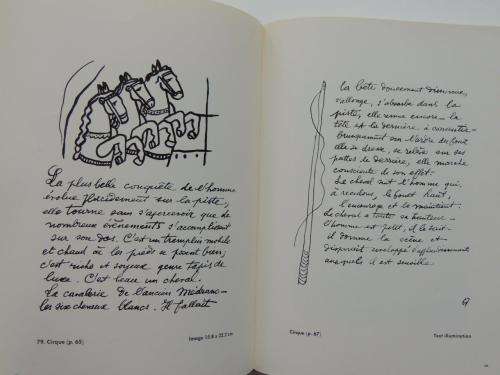 La plus belle conquête de l'homme
évolue placidement sur la piste,
elle tourne sans s'apercevoir que de
nombreux événements s'accomplissent
sur son dos. C'est un tremplin mobile
et chaud où les pieds se posent bien;
c'est riche et soyeux genre tapis de
luxe. C'est beau un cheval.
La cavalerie de l'ancien Medrano
les six chevaux blancs. Il fallait
79. Cirque (p. 65)
Image 10,8 x 22,2 cm
la bête doucement diminue,
s'allonge, s'absorbe dans la
piste, elle remue encore la
tête et le derrière à
brusquement l'arrêt du fouet
elle se dresse, se relève sur ses
pattes de derrière, elle marche
consciente de son effet.
Le cheval suit l'homme qui,
à reculons, le fouet haut,
l'encourage et le maintient.
Le cheval a toute sa hauteur
l'homme est petit, il le sait
il domine la scène et
disparaît enveloppé d'applaudissements
auxquels il est sensible.
Cirque (p. 67)
Text illumination